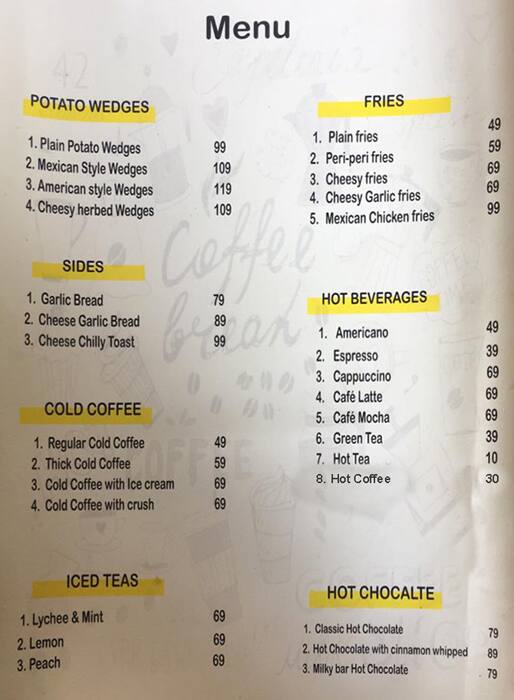 Menu
POTATO WEDGES
1. Plain Potato Wedges 99
2. Mexican Style Wedges 109
3. American style Wedges 119
4. Cheesy herbed Wedges 109
SIDES
1. Garlic Bread 79
2. Cheese Garlic Bread 89
3. Cheese Chilly Toast 99
COLD COFFEE
1. Regular Cold Coffee 49
2. Thick Cold Coffee 59
3. Cold Coffee with Ice cream 69
4. Cold Coffee with crush 69
ICED TEAS
1. Lychee & Mint 69
2. Lemon 69
3. Peach 69
FRIES
1. Plain fries 49
2. Peri-peri fries 59
3. Cheesy fries 69
4. Cheesy Garlic fries 69
5. Mexican Chicken fries 99
HOT BEVERAGES
1. Americano 49
2. Espresso 39
3. Cappuccino 69
4. Café Latte 69
5. Café Mocha 69
6. Green Tea 39
7. Hot Tea 10
8. Hot Coffee 30
HOT CHOCALTE
1. Classic Hot Chocolate 79
2. Hot Chocolate with cinnamon whipped 89
3. Milky bar Hot Chocolate 79
Coffee
break
COFFEE